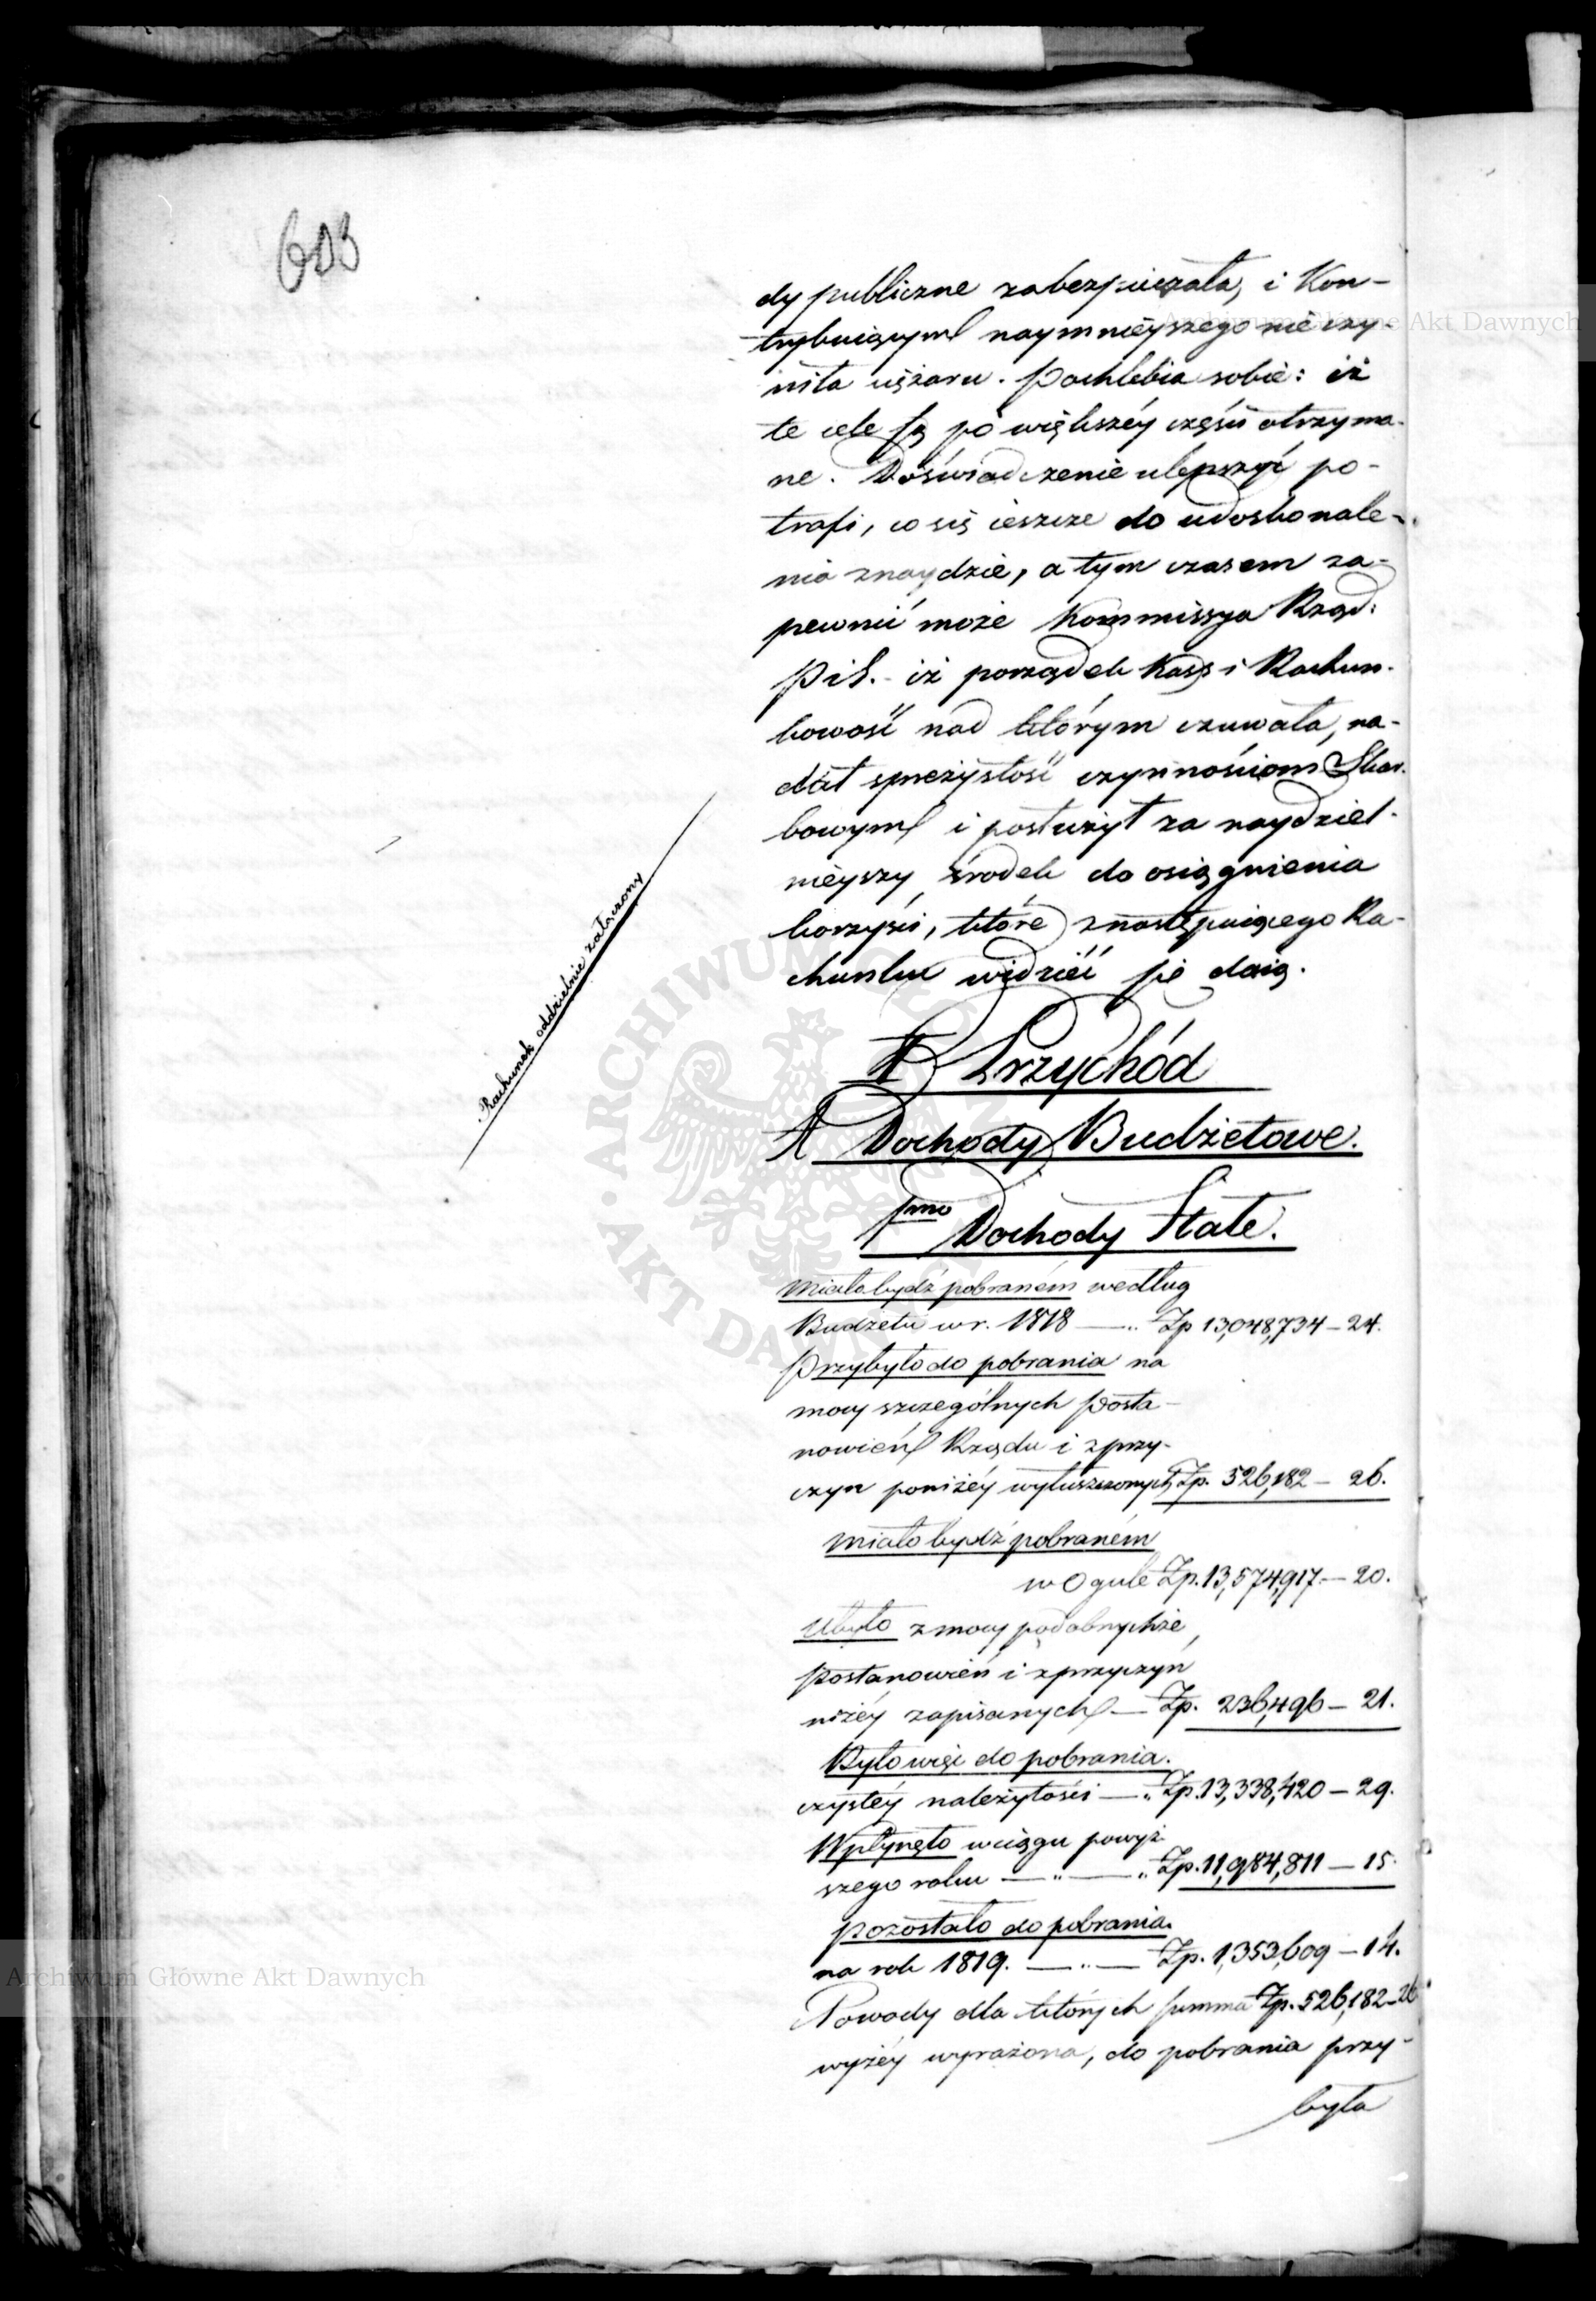 603
dy publiczne zabezpieczała, i Kon-
trybuiącym naymnieyszego nie czy-
niła ciężaru. Pochlebia sobie: iż
te cele są po większéy części otrzyma-
ne. Doświadczenie ulepszyć po-
trafi, co się ieszcze do udoskonale-
nia znaydzie, a tym czasem za-
pewnić może Kommissya Rząd:
P i S. iż porządek Kass i Rachun-
kowość nad którym czuwała, na-
dał sprężystość czynnościom Skar-
bowym i posłużył za naydziel-
nieyszy środek do osiągnienia
korzyści, które z następuiącego Ra-
chunku widzieć się daią.
Rachunek oddzielnie załączony
Przychód
A Dochody Budżetowe.
1mo Dochody Stałe.
Miało bydź pobraném według
Budżetu w r. 1818 — „ Zp 13,048,734 – 24.
Przybyło do pobrania na
mocy szczególnych Posta-
nowień Rządu i z przy-
czyn poniżéy wyłuszczonych Zp. 526,182 – 26.
Miało bydź pobraném
w Ogule Zp. 13,574,917 – 20.
Ubyło z mocy podobnychże
Postanowień i z przyczyn
niżéy zapisanych — Zp. 236,496 – 21.
Było więc do pobrania.
czystéy należytości — „ Zp. 13,338,420 – 29.
Wpłynęło w ciągu powyż-
szego roku — „ — „ Zp. 11,984,811 – 15.
Pozostało do pobrania.
na rok 1819. — „ — Zp. 1,353,609 – 14.
Powody dla których summa Zp. 526,182 – 26
wyżéy wyrażona, do pobrania przy-
była
Archiwum Główne Akt Dawnych
Archiwum Główne Akt Dawnych
ARCHIWUM GŁÓWNE · AKT DAWNYCH ·